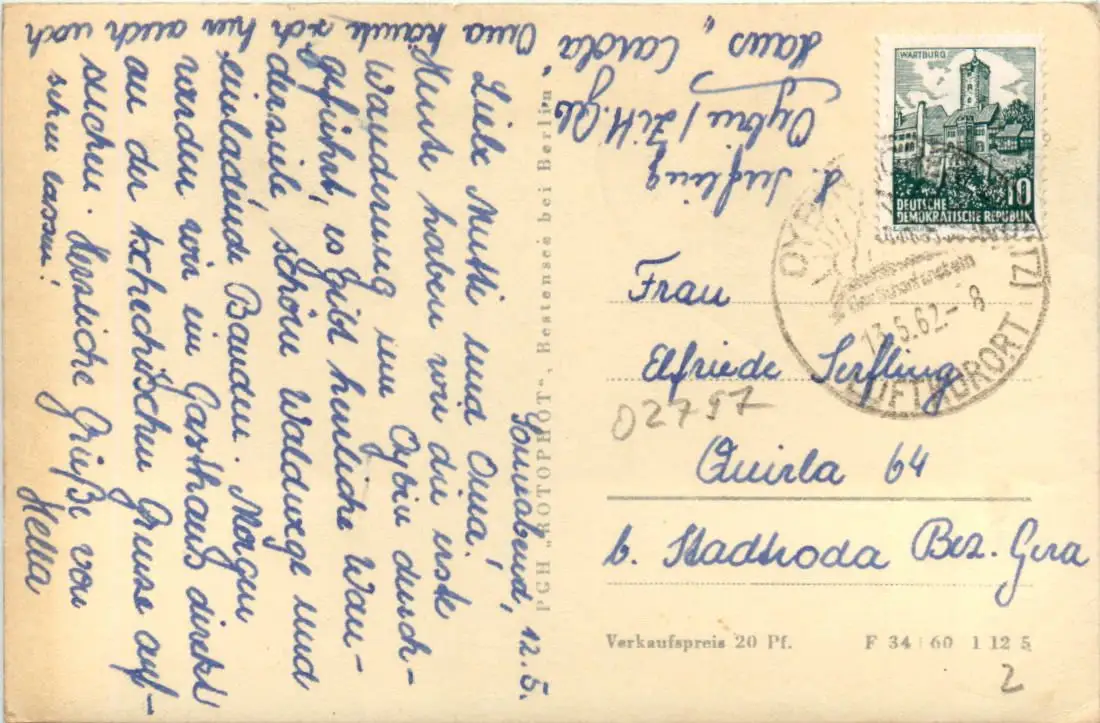 Sonnabend, 12.5.
Liebe Mutti und Oma!
Heute haben wir die erste
Wanderung um Oybin durch-
geführt, es gibt herrliche Wan-
derziele, schöne Waldwege und
einladende Bauden. Morgen
werden wir im Gasthaus direkt
an der tschechischen Grenze auf-
suchen. Herzliche Grüße von
Hella
Oma könnte sich hier auch noch
sehen lassen!
Haus „Carola“
Oybin / Zitt. Gb
PGH „ROTOPHOT“, Bestensee bei Berlin
WARTBURG
10
DEUTSCHE
DEMOKRATISCHE REPUBLIK
OYBIN
13.5.62.-8
LUFTKURORT
Frau
Elfriede Serfling
02757
Quirla 64
b. Stadtroda Bez. Gera
Verkaufspreis 20 Pf. F 34 60 1 12 5
2